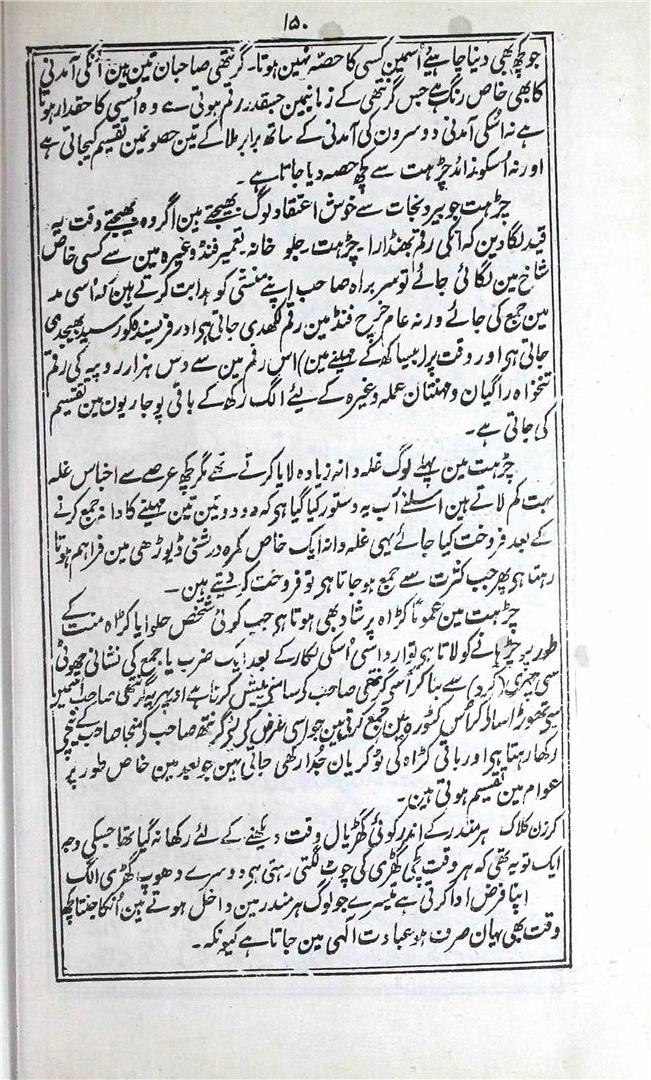 ۱۵۰
جو کچھ بھی دینا چاہیے اُسمین کسی کا حصہ نہین ہوتا۔ گرنتھی صاحبان تین ہین اُنکی آمدنی
کا بھی خاص رنگ ہے جس گرنتھی کے زمانہمین جسقدر رقم ہوتی ہے وہ اُسی کا حقدار ہوتا
ہے نہ اُسکی آمدنی دوسرون کی آمدنی کے ساتھ برابر ملا کے تین حصونمین تقسیم کیجاتی ہے
اور نہ اُسکو زائد چڑہت سے کچھ حصہ دیا جاتا ہے۔
چڑہت جو بیرونجات سے خوش اعتقاد لوگ بھیجتے ہین اگر وہ بھیجتے وقت یہ
قید لگا دین کہ اُنکی رقم بھنڈارا۔ چڑہت۔ جلو خانہ۔ تعمیر فنڈ وغیرہ مین سے کسی خاص
شاخ مین لگائی جائے تو سربراہ صاحب اپنے منشی کو ہدایت کرتے ہین کہ اُسی مد
مین جمع کی جائے ورنہ عام خرچ فنڈ مین رقم لکھدی جاتی ہی اور فریسندہ کو رسید بھیجدی
جاتی ہی اور وقت پر (بیساکھ کے مہینے مین) اس رقم مین سے دس ہزار روپیہ کی رقم
تنخواہ راگیان و مہنتان عملہ وغیرہ کے لیئے الگ رکھ کے باقی پوجاریون مین تقسیم
کی جاتی ہے۔
چڑہت مین پہلے لوگ غلہ دانہ زیادہ لایا کرتے تھے مگر کچھ عرصے سے اجناس غلہ
بہت کم لاتے ہین اسلئے اب یہ دستور کیا گیا ہی کہ دو دو تین تین مہینے کا دانہ جمع کرنے
کے بعد فروخت کیا جائے یہی غلہ دانہ ایک خاص کمرہ درشنی ڈیوڑھی مین فراہم ہوتا
رہتا ہی پھر جب کثرت سے جمع ہو جاتا ہی تو فروخت کر دیتے ہین۔
چڑہت مین عموماً کڑاہ پرشاد بھی ہوتا ہی جب کوئی شخص حلوا یا کڑاہ منت کے
طور پر چڑہانے کو لاتا ہی تو ارداسی اُسکی للکار کے بعد ایک ضرب یا جمع کی نشانی چھوٹی
سی چھری (کرد) سے بنا کر اُسی گرنتھی صاحب کے سامنے پیش کرتا ہے اور پھر گرنتھی صاحب اُسمین
سے تھوڑا سا لے کر اُس کٹورہ مین جمع کرتے ہین جو اسی غرض کے لئے گرنتھ صاحب کے منجا صاحب کے نیچے
رکھا رہتا ہی اور باقی کڑاہ کی ٹوکریان جُدا رکھی جاتی ہین جو بعد مین خاص طور پر
عوام مین تقسیم ہوتی ہین۔
کرزن کلاک ہر مندر کے اندر کوئی گھڑیال وقت دیکھنے کے لئے رکھا نہ گیا تھا جسکی وجہ
ایک تو یہ تھی کہ ہر وقت پلی گھڑی کی چوٹ لگتی رہتی ہی دوسرے دھوپ گھڑی الگ
اپنا فرض ادا کرتی ہے تیسرے جو لوگ ہر مندر مین داخل ہوتے ہین اُنکا جتنا کچھ
وقت بھی یہان صرف ہو عبادت الٰہی مین جاتا ہے کیونکہ۔